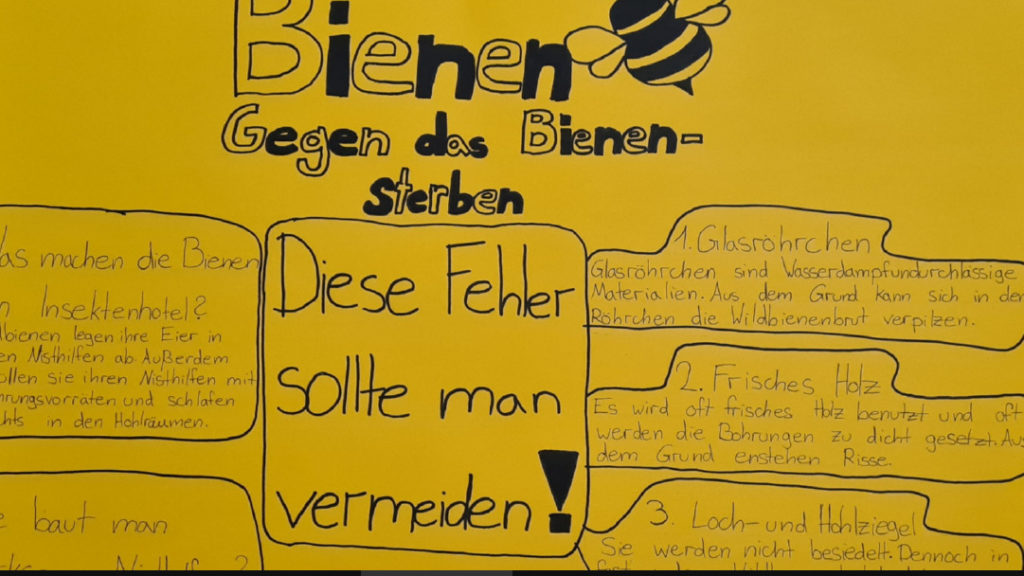 Bienen
Gegen das Bienen-
sterben
as machen die Bienen
n Insektenhotel?
bienen legen ihre Eier in
en Nisthilfen ab. Außerdem
ollen sie ihren Nisthilfen mit
hrungsvorräten und schlafen
chts in den Hohlräumen.
e baut man
Diese Fehler
sollte man
vermeiden!
1. Glasröhrchen
Glasröhrchen sind Wasserdampfundurchlässige
Materialien. Aus dem Grund kann sich in der
Röhrchen die Wildbienenbrut verpilzen.
2. Frisches Holz
Es wird oft frisches Holz benutzt und oft
werden die Bohrungen zu dicht gesetzt. Aus
dem Grund enstehen Risse.
3. Loch- und Hohlziegel
Sie werden nicht besiedelt. Dennoch in